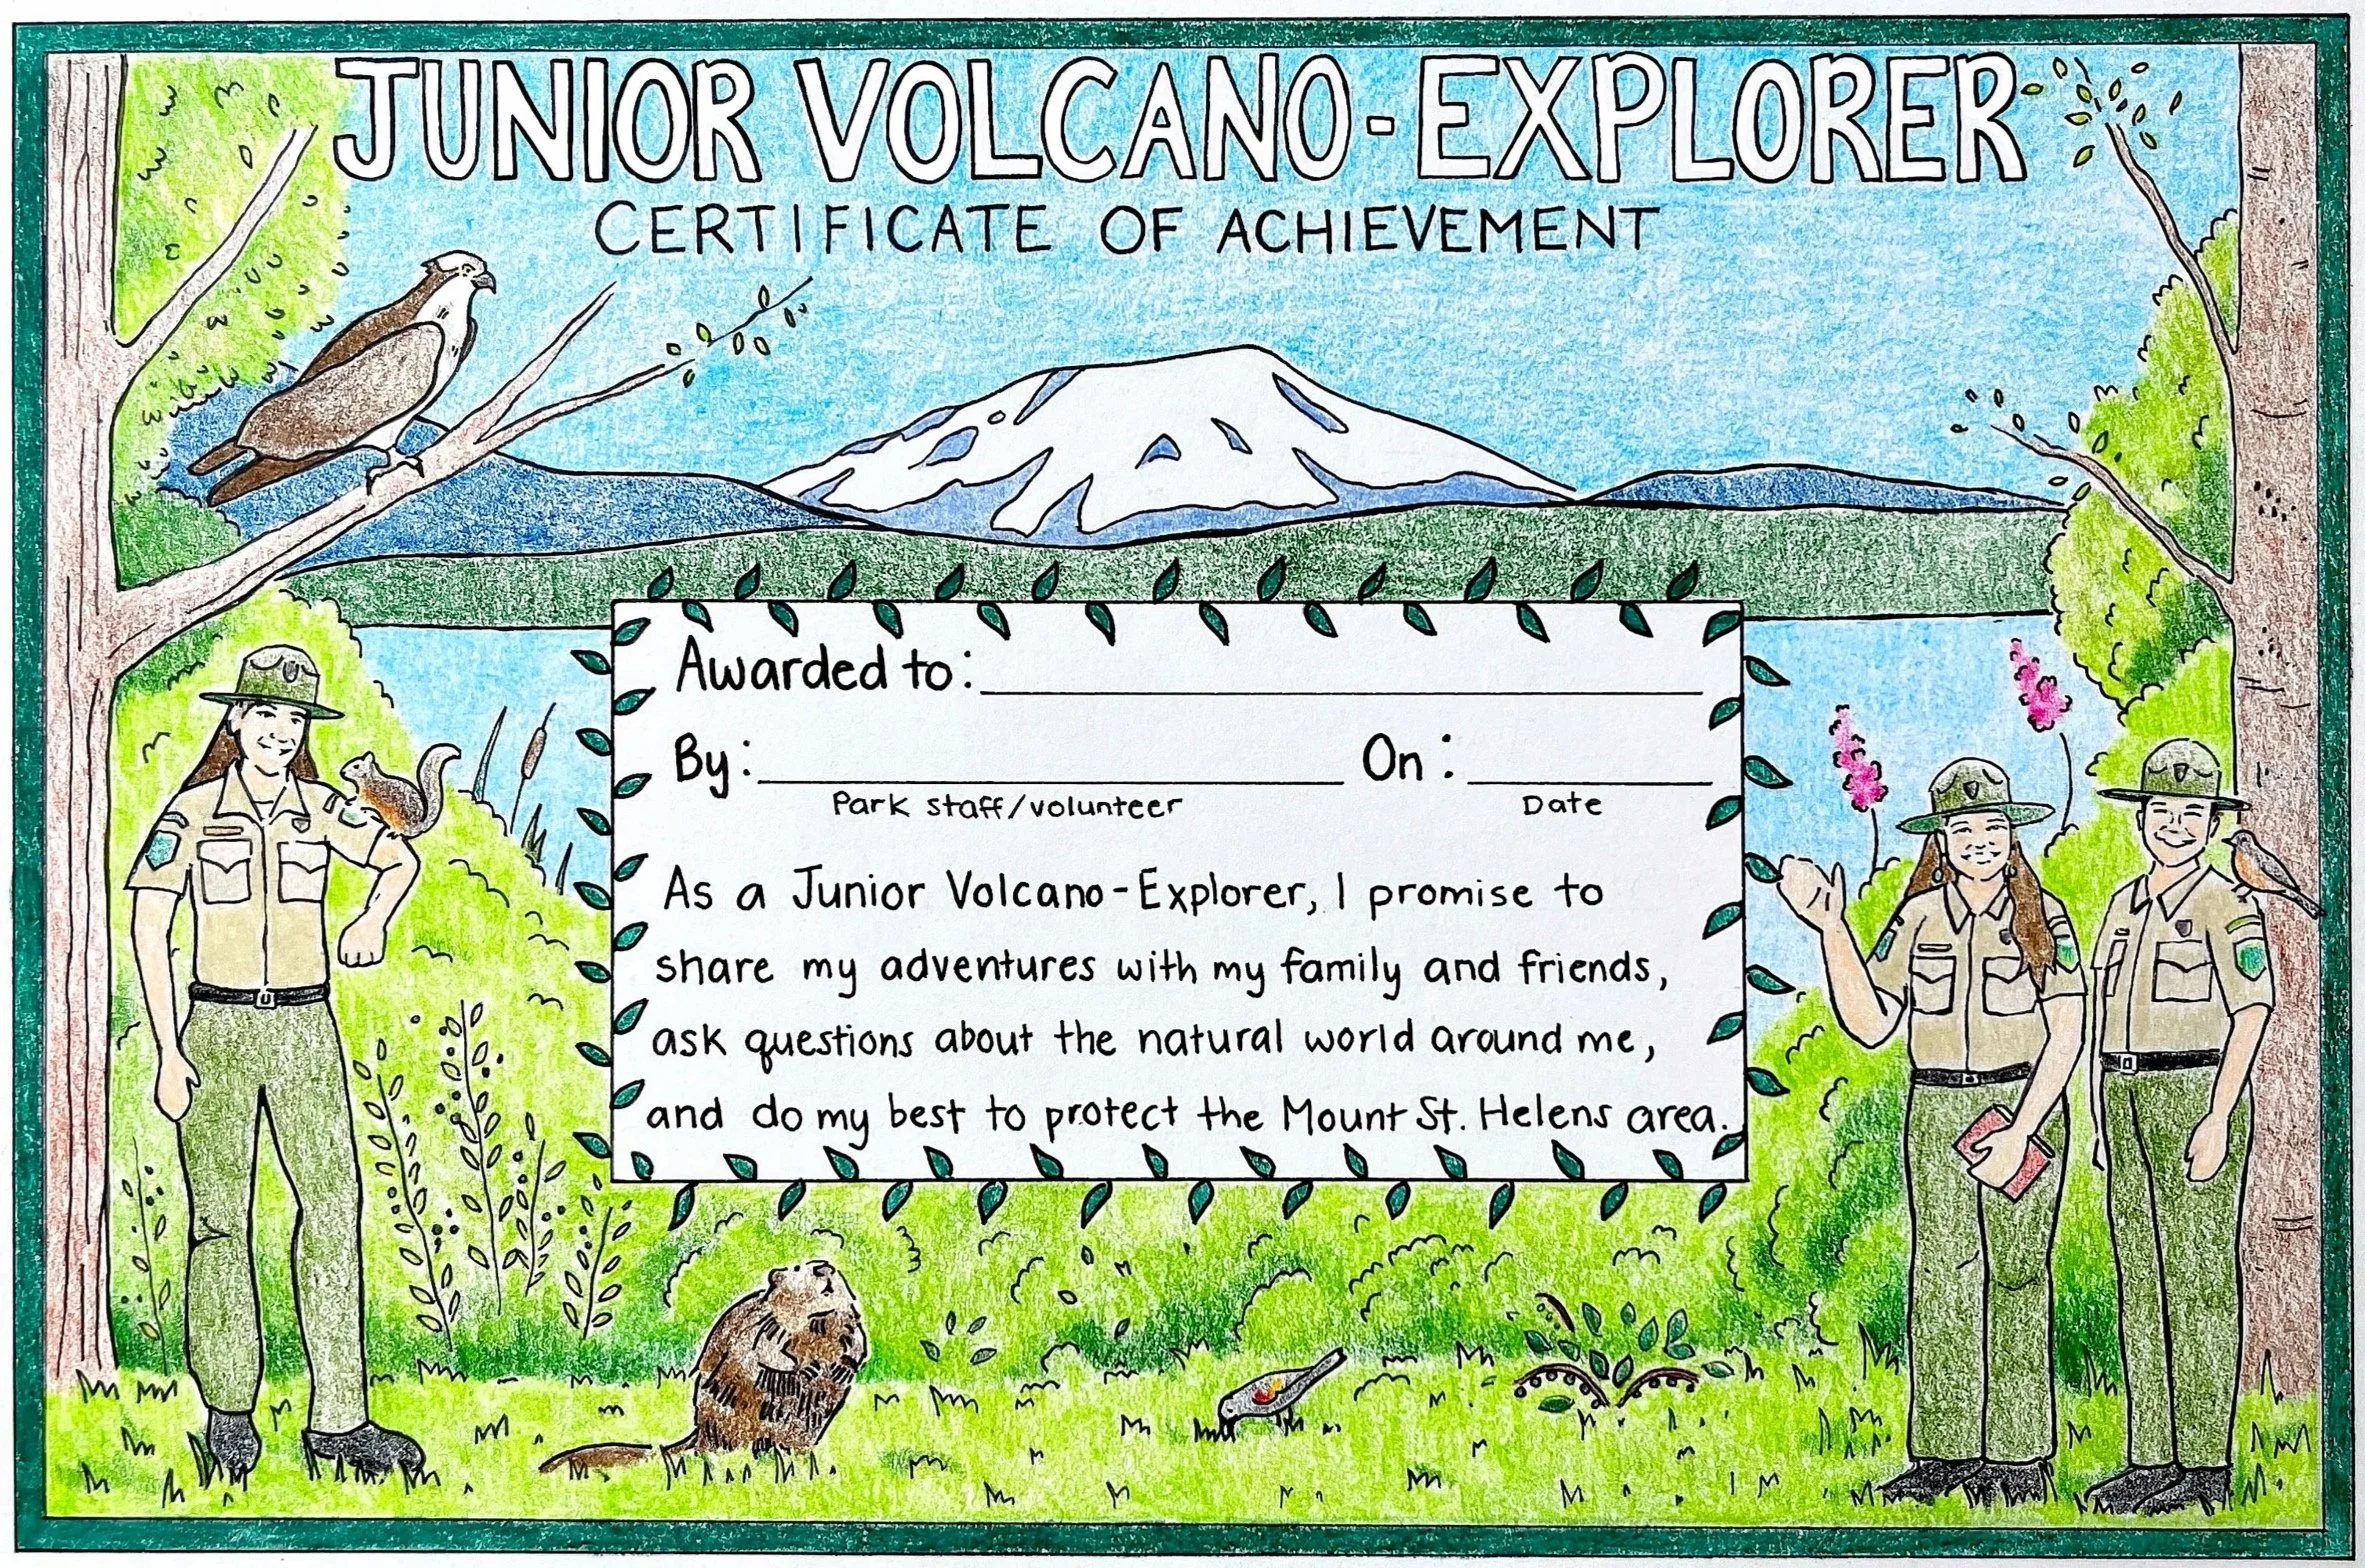 JUNIOR VOLCANO-EXPLORER
CERTIFICATE OF ACHIEVEMENT
Awarded to:
By: On:
Park staff/volunteer Date
As a Junior Volcano-Explorer, I promise to
share my adventures with my family and friends,
ask questions about the natural world around me,
and do my best to protect the Mount St. Helens area.